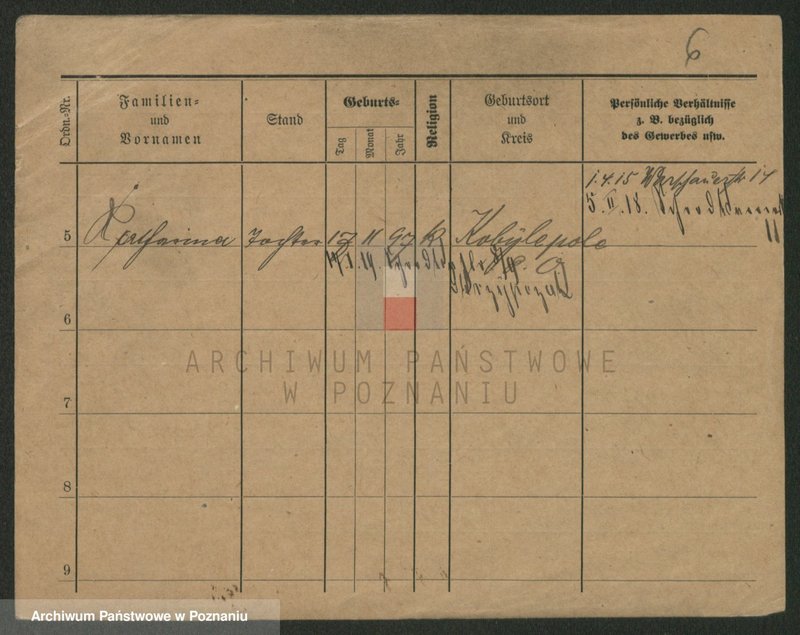 6
Ordn.-Nr.
Familien-
und
Vornamen
Stand
Geburts-
Tag
Monat
Jahr
Religion
Geburtsort
und
Kreis
Persönliche Verhältnisse
z. B. bezüglich
des Gewerbes usw.
1.4.15 Warschauerstr 17
5. II. 18.
11
5 Katharina Tochter 17 11 97 K Kobylepole
6
ARCHIWUM PAŃSTWOWE
W POZNANIU
7
8
9
Archiwum Państwowe w Poznaniu